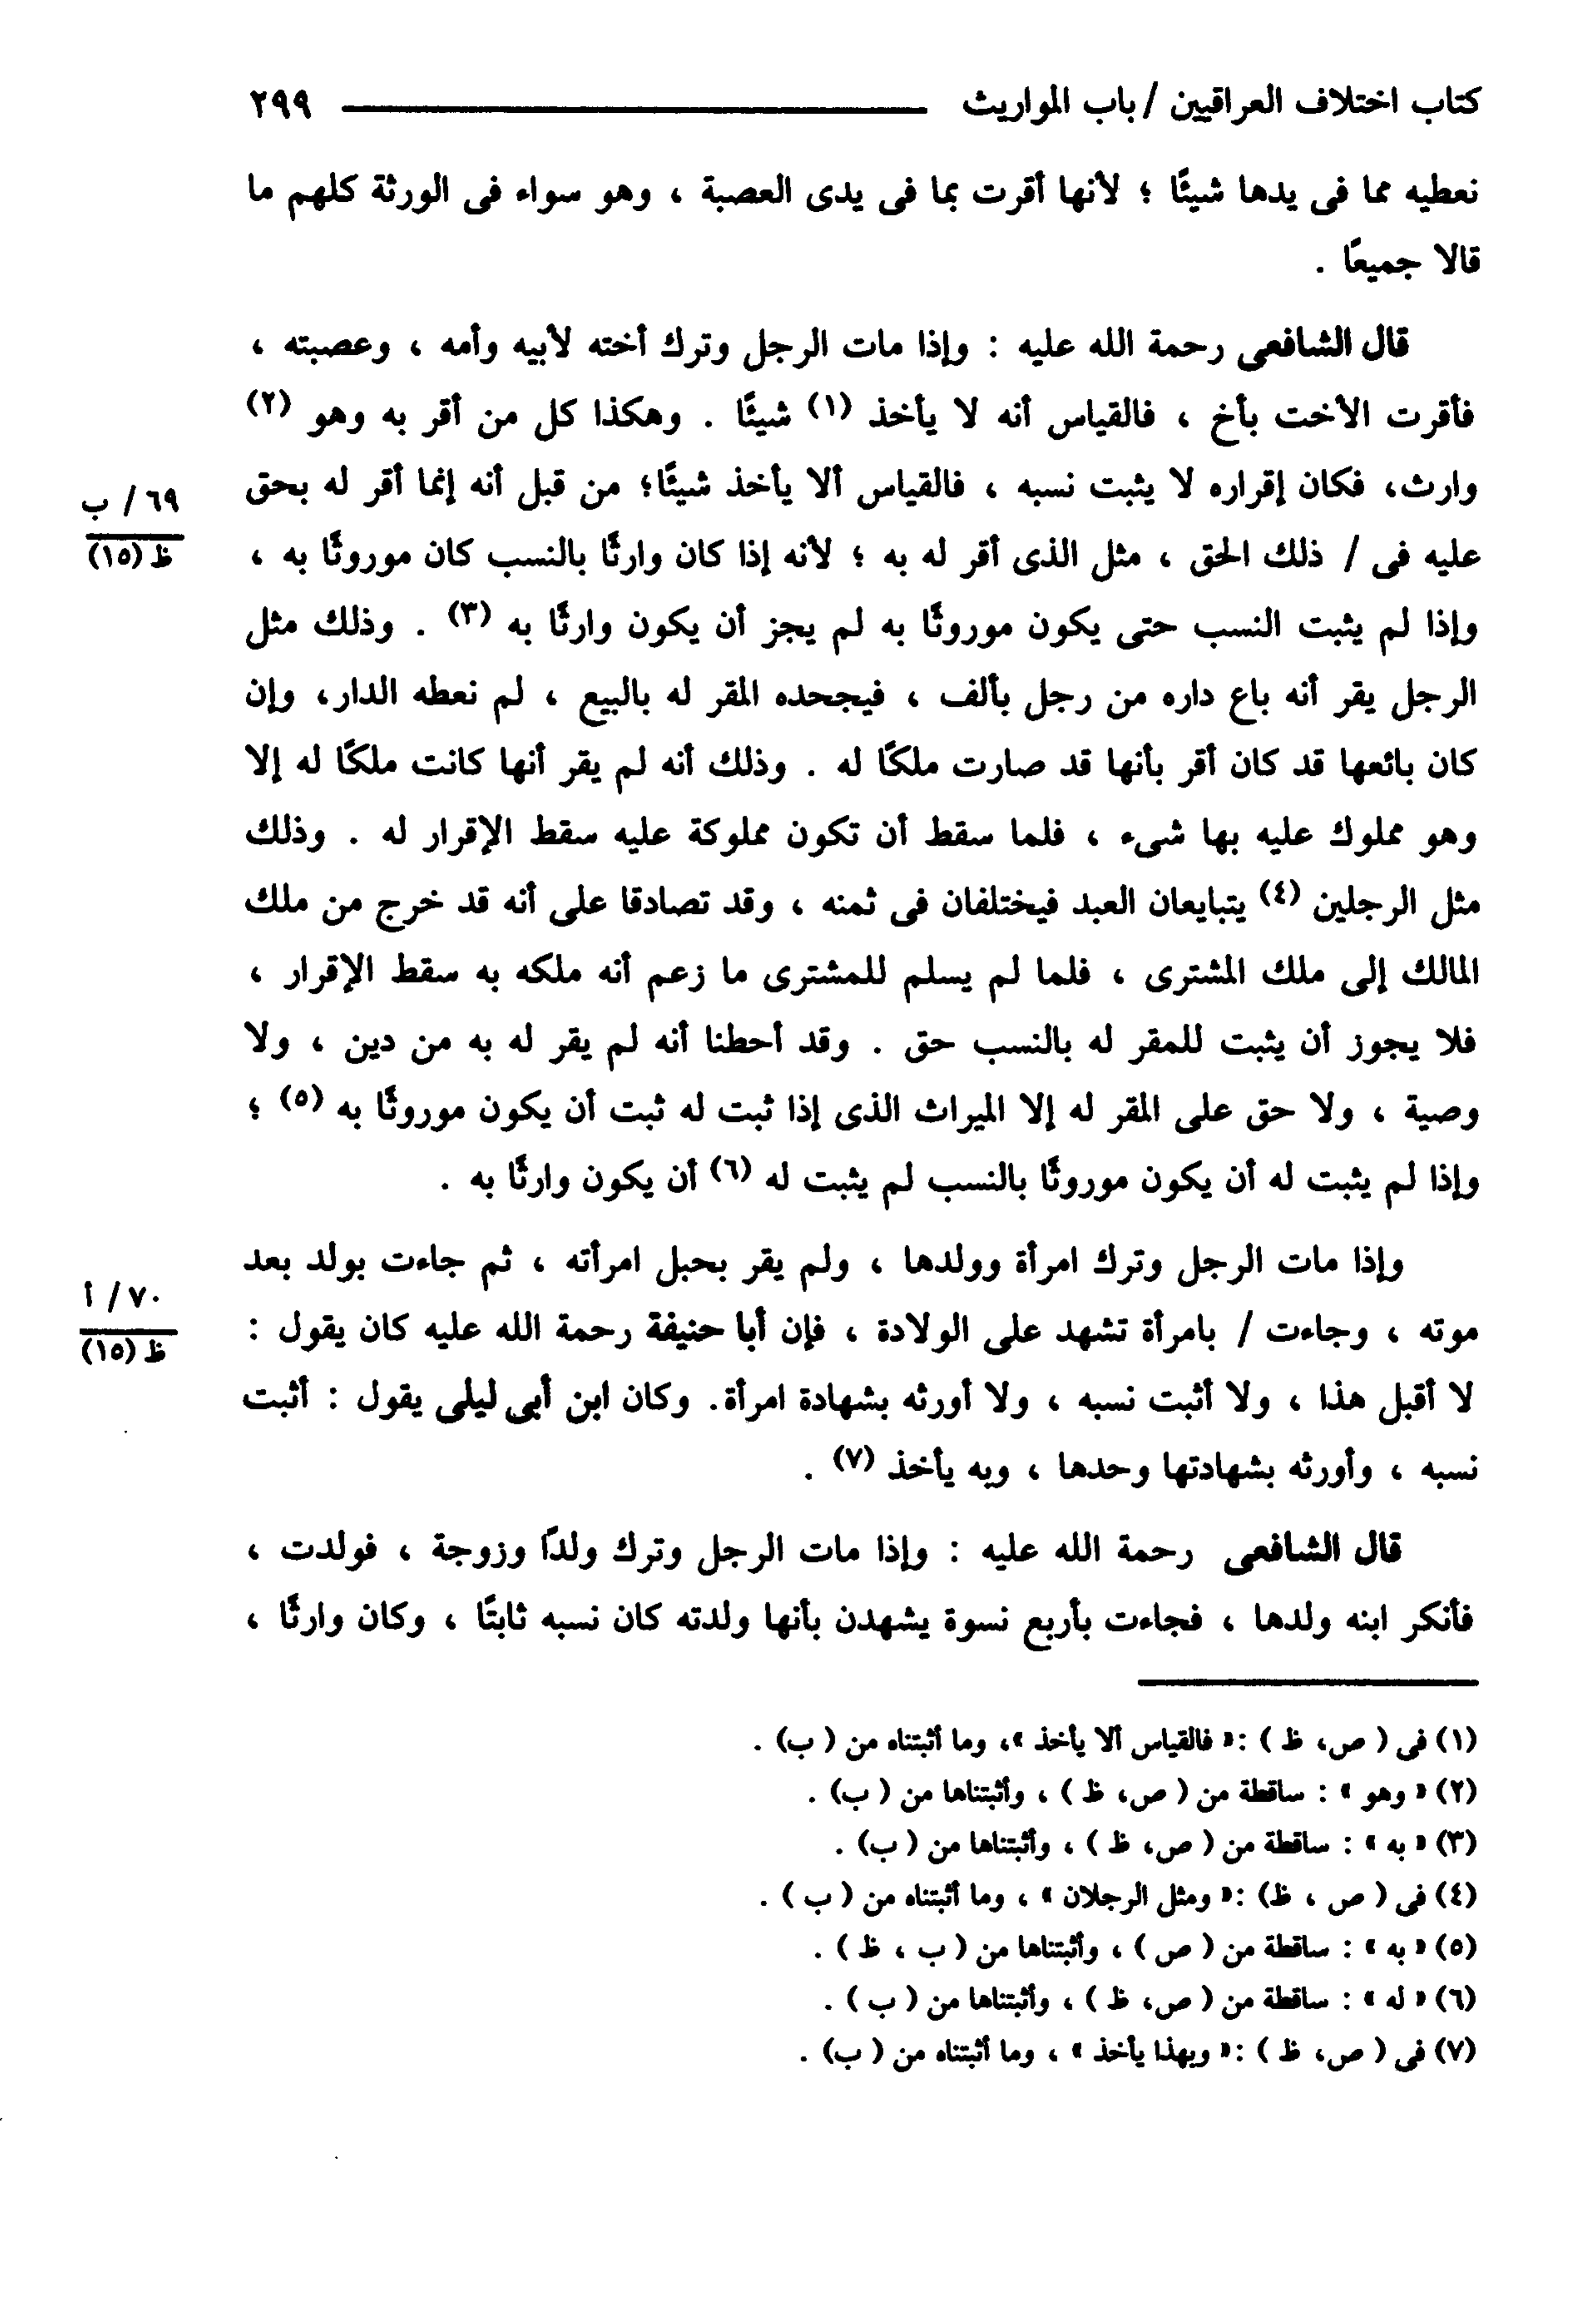 كتاب اختلاف العراقيين / باب المواريث ــــــــــــــــــــ ٢٩٩
نعطيه مما فى يدها شيئًا ؛ لأنها أقرت بما فى يدى العصبة ، وهو سواء فى الورثة كلهم ما
قالا جميعًا .
قال الشافعى رحمة الله عليه : وإذا مات الرجل وترك أخته لأبيه وأمه ، وعصبته ،
فأقرت الأخت بأخ ، فالقياس أنه لا يأخذ (١) شيئًا . وهكذا كل من أقر به وهو (٢)
وارث، فكان إقراره لا يثبت نسبه ، فالقياس ألا يأخذ شيئًا؛ من قبل أنه إنما أقر له بحق
٦٩ / ب
ظ (١٥)
عليه فى / ذلك الحق ، مثل الذى أقر له به ؛ لأنه إذا كان وارثًا بالنسب كان موروثًا به ،
وإذا لم يثبت النسب حتى يكون موروثًا به لم يجز أن يكون وارثًا به (٣) . وذلك مثل
الرجل يقر أنه باع داره من رجل بألف ، فيجحده المقر له بالبيع ، لم نعطه الدار، وإن
كان بائعها قد كان أقر بأنها قد صارت ملكًا له . وذلك أنه لم يقر أنها كانت ملكًا له إلا
وهو مملوك عليه بها شىء ، فلما سقط أن تكون مملوكة عليه سقط الإقرار له . وذلك
مثل الرجلين (٤) يتبايعان العبد فيختلفان فى ثمنه ، وقد تصادقا على أنه قد خرج من ملك
المالك إلى ملك المشترى ، فلما لم يسلم للمشترى ما زعم أنه ملكه به سقط الإقرار ،
فلا يجوز أن يثبت للمقر له بالنسب حق . وقد أحطنا أنه لم يقر له به من دين ، ولا
وصية ، ولا حق على المقر له إلا الميراث الذى إذا ثبت له ثبت أن يكون موروثًا به (٥) ؛
وإذا لم يثبت له أن يكون موروثًا بالنسب لم يثبت له (٦) أن يكون وارثًا به .
وإذا مات الرجل وترك امرأة وولدها ، ولم يقر بحبل امرأته ، ثم جاءت بولد بعد
٧٠ / أ
ظ (١٥)
موته ، وجاءت / بامرأة تشهد على الولادة ، فإن أبا حنيفة رحمة الله عليه كان يقول :
لا أقبل هذا ، ولا أثبت نسبه ، ولا أورثه بشهادة امرأة. وكان ابن أبى ليلى يقول : أثبت
نسبه ، وأورثه بشهادتها وحدها ، وبه يأخذ (٧) .
قال الشافعى رحمة الله عليه : وإذا مات الرجل وترك ولدًا وزوجة ، فولدت ،
فأنكر ابنه ولدها ، فجاءت بأربع نسوة يشهدن بأنها ولدته كان نسبه ثابتًا ، وكان وارثًا ،
(١) فى ( ص، ظ ) :« فالقياس ألا يأخذ »، وما أثبتناه من ( ب) .
(٢) « وهو » : ساقطة من ( ص، ظ ) ، وأثبتناها من ( ب) .
(٣) « به » : ساقطة من ( ص، ظ ) ، وأثبتناها من ( ب) .
(٤) فى ( ص ، ظ) :« ومثل الرجلان » ، وما أثبتناه من ( ب ) .
(٥) « به » : ساقطة من ( ص ) ، وأثبتناها من ( ب ، ظ ) .
(٦) « له » : ساقطة من ( ص، ظ ) ، وأثبتناها من ( ب ) .
(٧) فى ( ص، ظ ) :« وبهذا يأخذ » ، وما أثبتناه من ( ب) .